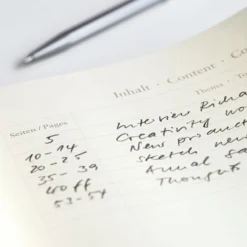 Inhalt · Content · Co
Seiten / Pages
Thema
5 Interview Richa
10-14 Creativity wo
20-25 New product
35-39 sketch new
40 ff Annual
53-54 Thoughts